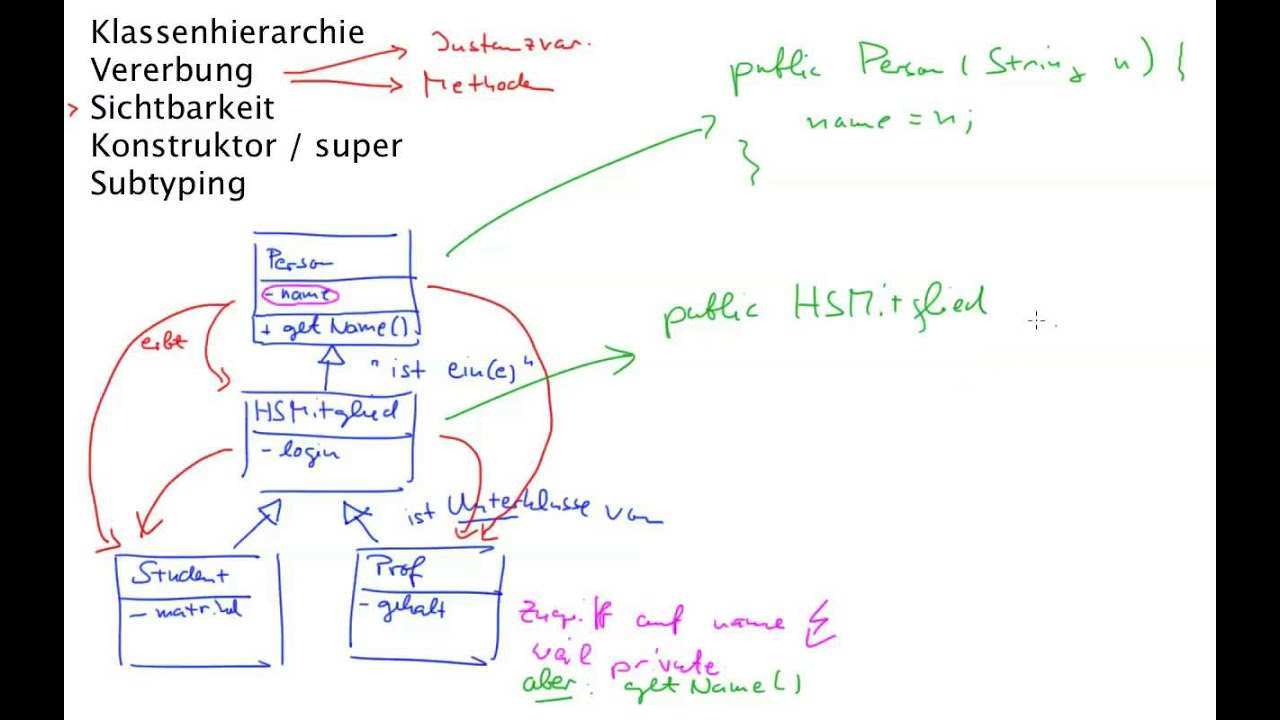 Klassenhierarchie
Vererbung
> Sichtbarkeit
Konstruktor / super
Subtyping
Instanzvar.
Methoden
public Person ( String n ) {
name = n;
}
Person
- name
+ getName()
erbt
"ist ein(e)"
public HSMitglied
HSMitglied
- login
ist Unterklasse von
Student
- matrikel
Prof
- gehalt
Zugriff auf name
weil private
aber: getName()